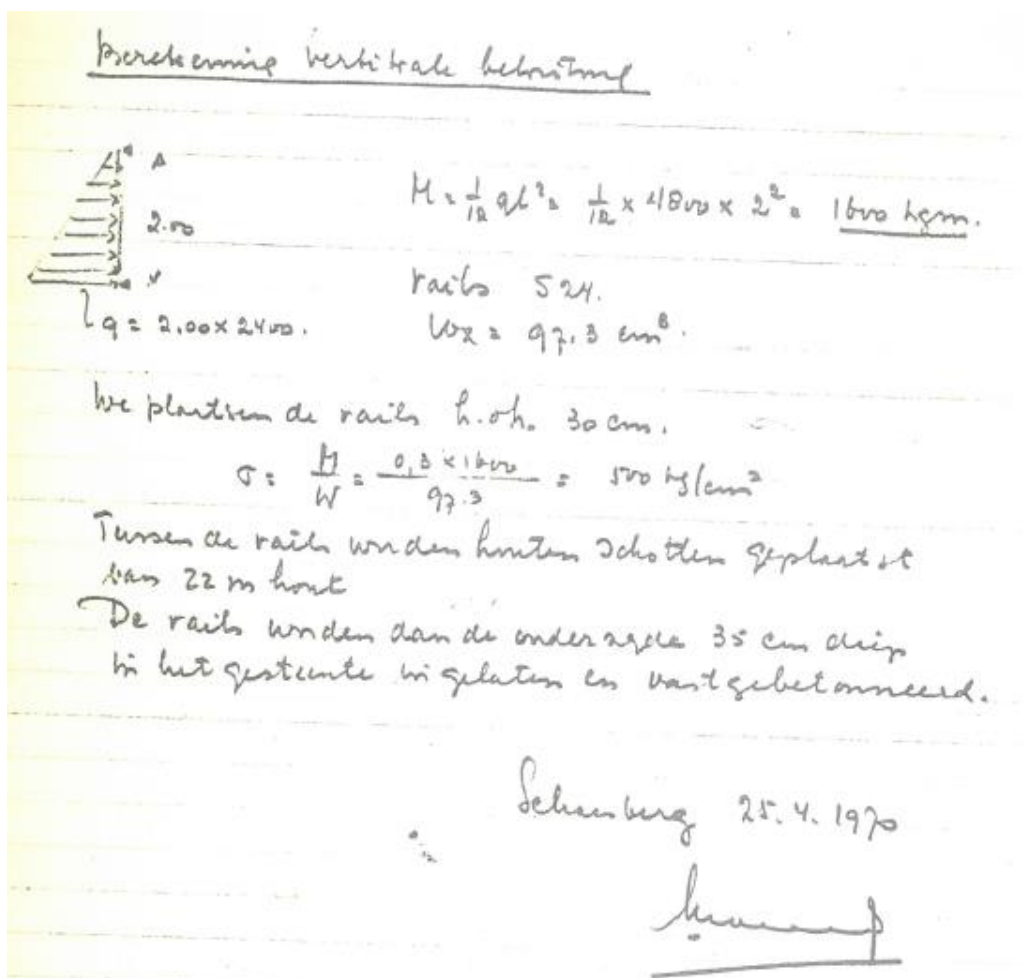 Berekening vertikale belasting
2.00
M = 1/12 ql² = 1/12 × 4800 × 2² = 1600 kgm.
q = 2.00 × 2400.
rails S24.
Wx = 97.3 cm³.
We plaatsen de rails h.o.h. 30 cm.
σ = M/W = 0,3 × 1600 / 97.3 = 500 kg/cm²
Tussen de rails worden houten schotten geplaatst
van 22 m hout
De rails worden dan de onderzyde 35 cm diep
in het gesteente ingelaten en vastgebetonneerd.
Schaesberg 25.4.1970